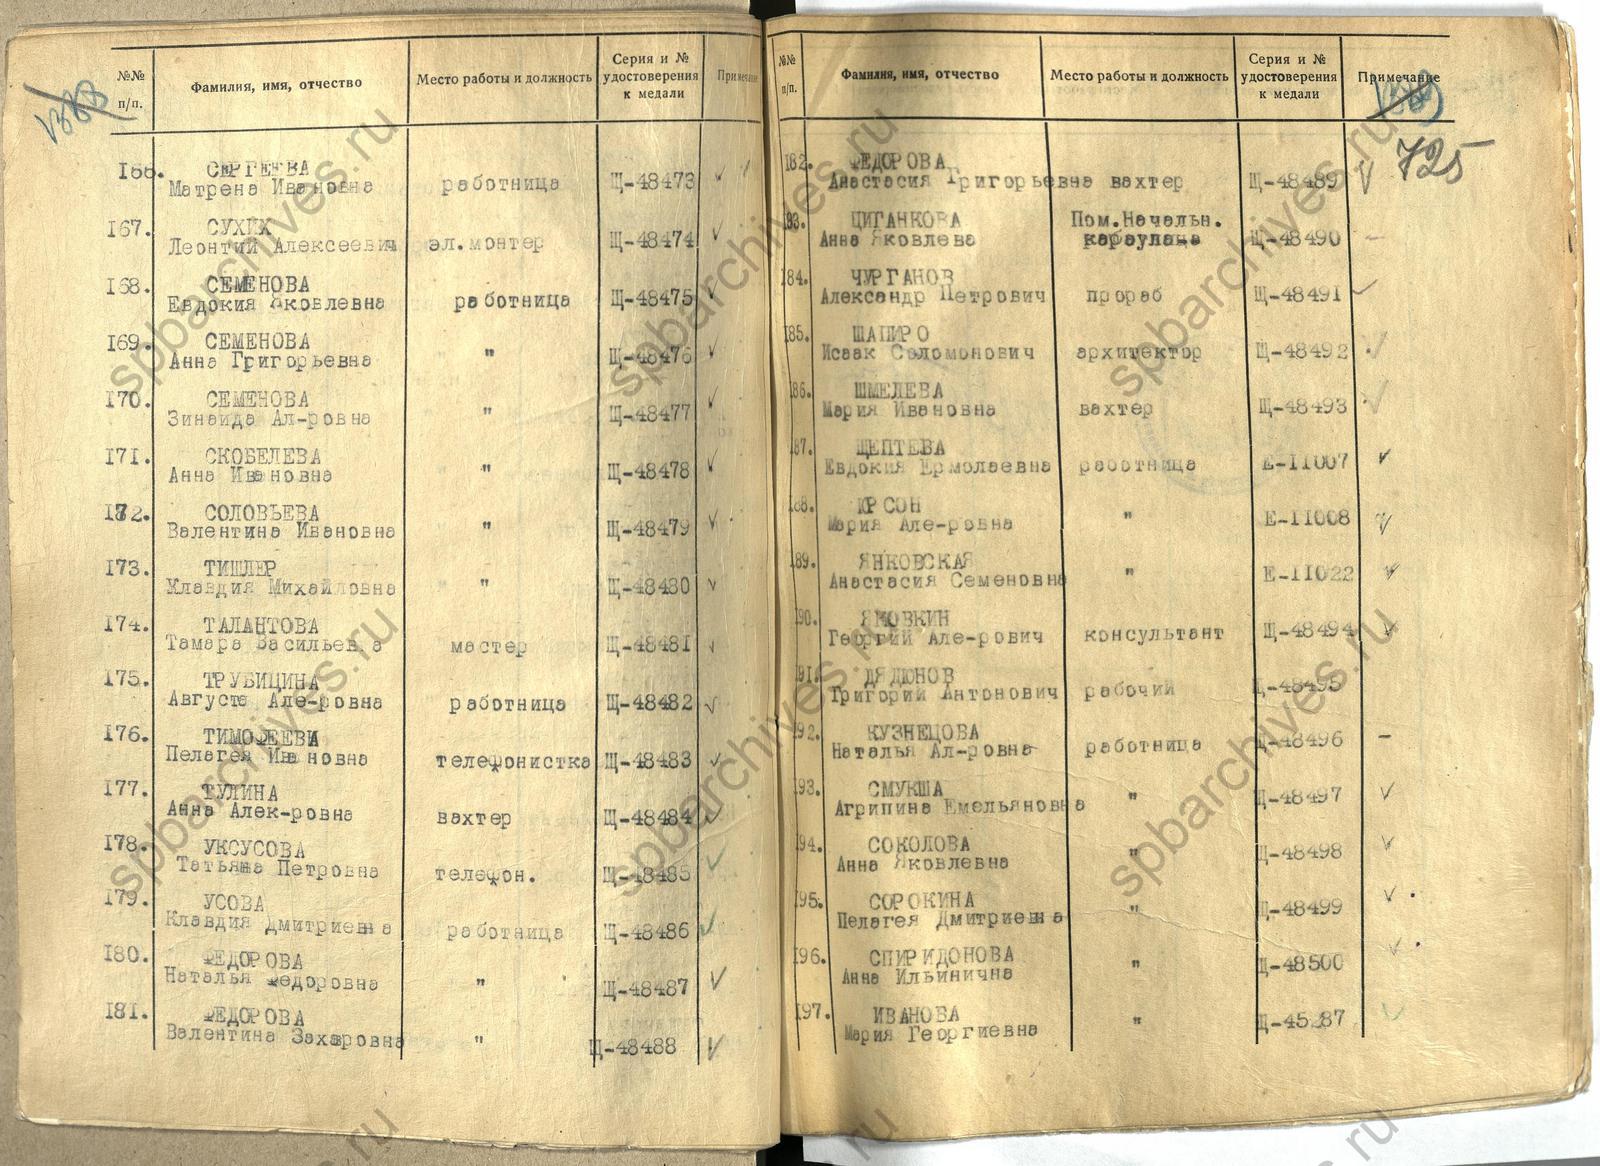 №№ п/п.
Фамилия, имя, отчество
Место работы и должность
Серия и № удостоверения к медали
Примечание
166. СЕРГЕЕВА
Матрена Ивановна работница Щ-48473
167. СУХИХ
Леонтий Алексеевич эл.монтер Щ-48474
168. СЕМЕНОВА
Евдокия Яковлевна работница Щ-48475
169. СЕМЕНОВА
Анна Григорьевна " Щ-48476
170. СЕМЕНОВА
Зинаида Ал-ровна " Щ-48477
171. СКОБЕЛЕВА
Анна Ивановна " Щ-48478
172. СОЛОВЬЕВА
Валентина Ивановна " Щ-48479
173. ТИШЛЕР
Клавдия Михайловна " Щ-48480
174. ТАЛАНТОВА
Тамара Васильевна мастер Щ-48481
175. ТРУБИЦИНА
Августа Але-ровна работница Щ-48482
176. ТИМОФЕЕВИ
Пелагея Ивановна телефонистка Щ-48483
177. ТУЛИНА
Анна Алек-ровна вахтер Щ-48484
178. УКСУСОВА
Татьяна Петровна телефон. Щ-48485
179. УСОВА
Клавдия Дмитриевна работница Щ-48486
180. ФЕДОРОВА
Наталья Федоровна " Щ-48487
181. ФЕДОРОВА
Валентина Захаровна " Щ-48488
№№ п/п.
Фамилия, имя, отчество
Место работы и должность
Серия и № удостоверения к медали
Примечание
725
182. ФЕДОРОВА
Анастасия Григорьевна вахтер Щ-48489
183. ЦИГАНКОВА Пом.Начальн.
Анна Яковлева караулаца Щ-48490
184. ЧУРГАНОВ
Александр Петрович прораб Щ-48491
185. ШАПИРО
Исаак Соломонович архитектор Щ-48492
186. ШМЕЛЕВА
Мария Ивановна вахтер Щ-48493
187. ЩЕПТЕВА
Евдокия Ермолаевна работница Е-11007
188. ЮРСОН
Мария Але-ровна " Е-11008
189. ЯНКОВСКАЯ
Анастасия Семеновна " Е-11022
190. ЯМОВКИН
Георгий Але-рович консультант Щ-48494
191. ДЯДЮНОВ
Григорий Антонович рабочий Щ-48495
192. КУЗНЕЦОВА
Наталья Ал-ровна работница Щ-48496
193. СМУКША
Агрипина Емельяновна " Щ-48497
194. СОКОЛОВА
Анна Яковлевна " Щ-48498
195. СОРОКИНА
Пелагея Дмитриевна " Щ-48499
196. СПИРИДОНОВА
Анна Ильинична " Щ-48500
197. ИВАНОВА
Мария Георгиевна " Щ-45287
spbarchives.ru
spbarchives.ru
spbarchives.ru
spbarchives.ru
spbarchives.ru
spbarchives.ru